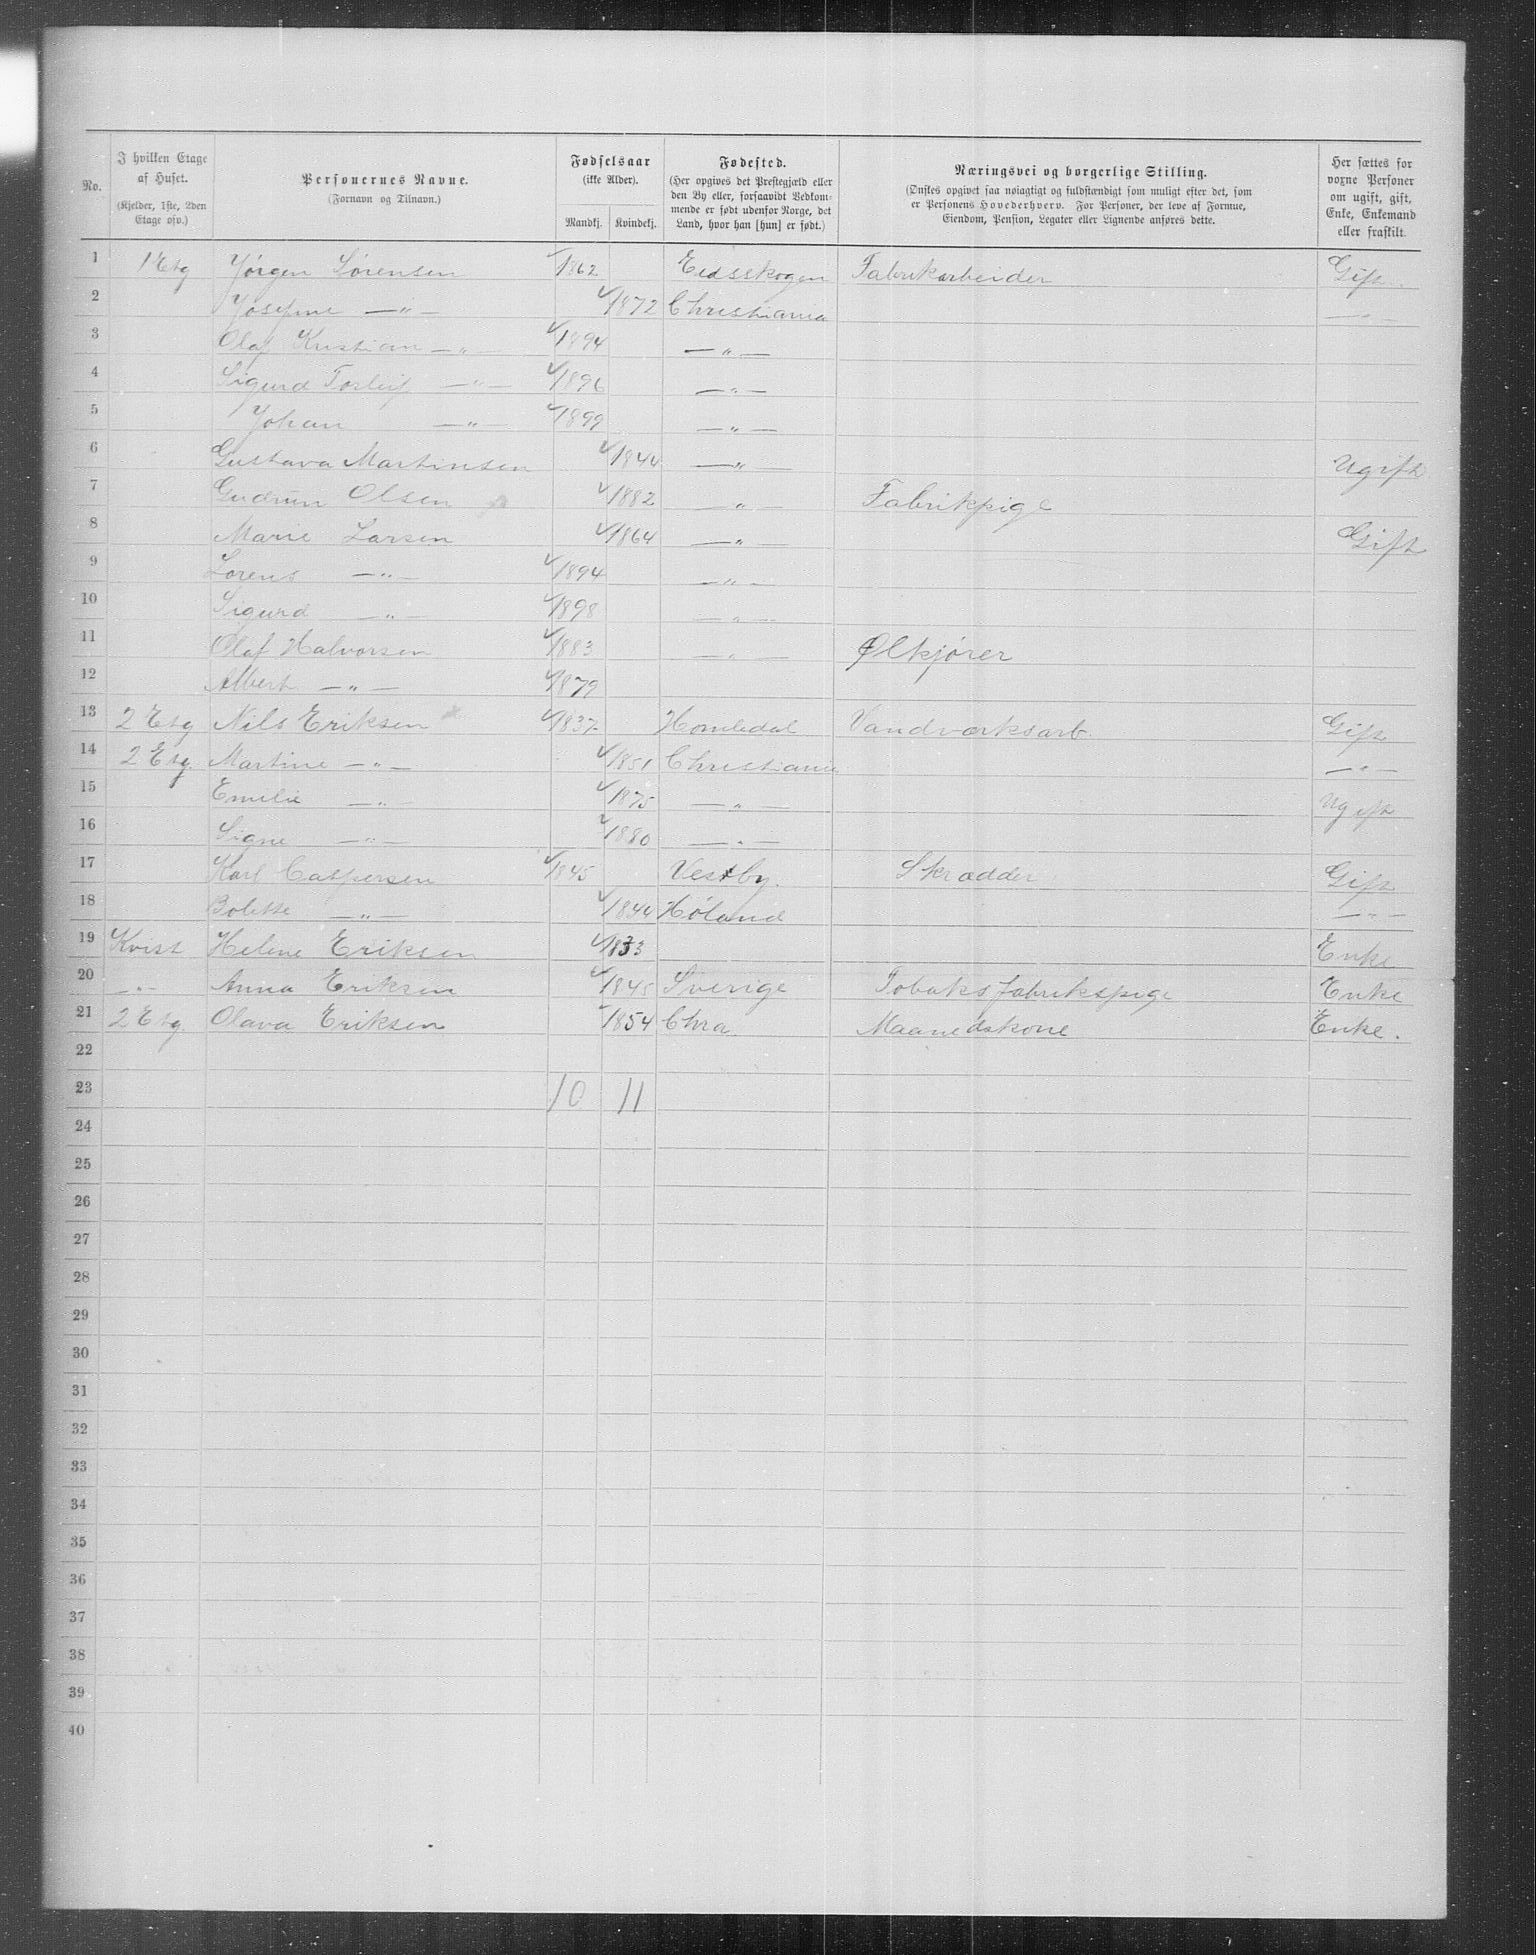 No.
I hvilken Etage af Huset. (Kjelder, 1ste, 2den Etage osv.)
Personernes Navne. (Fornavn og Tilnavn.)
Fødselsaar (ikke Alder). Mandkj. Kvindekj.
Fødested. (Her opgives det Prestegjæld eller den By eller, forsaavidt Vedkommende er født udenfor Norge, det Land, hvor han [hun] er født.)
Næringsvei og borgerlige Stilling. (Ønskes opgivet saa nøiagtigt og fuldstændigt som muligt efter det, som er Personens Hovederhverv. For Personer, der leve af Formue, Eiendom, Pension, Legater eller Lignende anføres dette.)
Her sættes for voxne Personer om ugift, gift, Enke, Enkemand eller fraskilt.
1 1 Etg Jørgen Sørensen 1862 Eidsskogen Fabrikarbeider Gift.
2 Josefine —"— 1872 Christiania —"—
3 Olaf Kristian —"— 1894 —"—
4 Sigurd Torleif —"— 1896 —"—
5 Johan —"— 1899 —"—
6 Gustava Martinsen 1844 —"— Ugift
7 Gudrun Olsen 1882 —"— Fabrikpige
8 Marie Larsen 1864 —"— Gift
9 Lorens —"— 1894 —"—
10 Sigurd —"— 1898 —"—
11 Olaf Halvorsen 1883 —"— Ølkjører
12 Albert —"— 1879
13 2 Etg Nils Eriksen 1837 Homledal Vandværksarb. Gift
14 2 Etg. Martine —"— 1851 Christiania —"—
15 Emilie —"— 1875 —"— Ugift
16 Signe —"— 1880 —"—
17 Karl Caspersen 1845 Vestby. Skrædder Gift
18 Bolette —"— 1844 Høland —"—
19 Kvist Helene Eriksen 1833 Enke
20 —"— Anna Eriksen 1845 Sverige Tobaksfabrikspige Enke
21 2 Etg. Olava Eriksen 1854 Chra Maanedskone Enke.
22
23 10 11
24
25
26
27
28
29
30
31
32
33
34
35
36
37
38
39
40